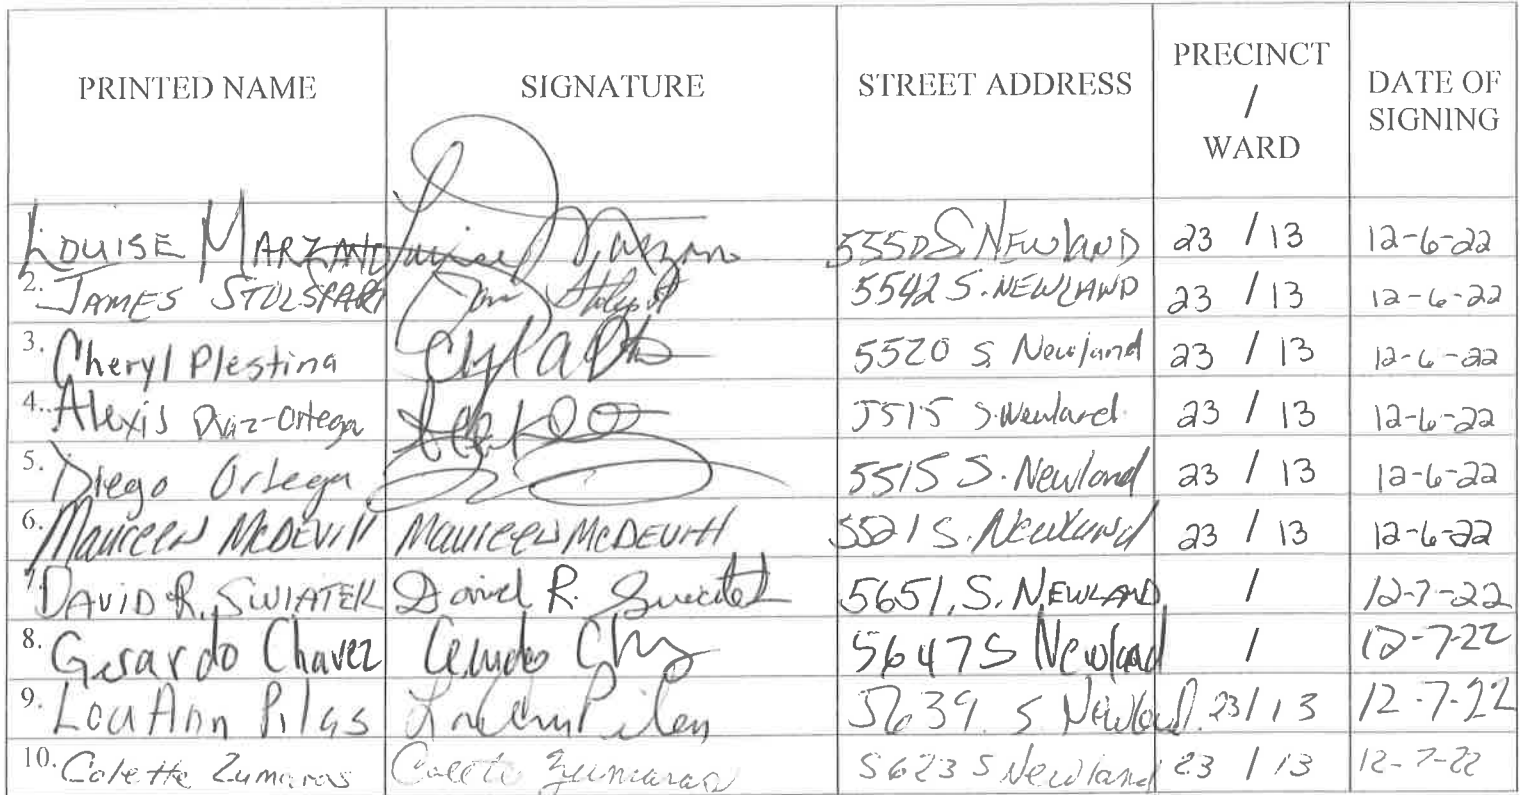 PRINTED NAME SIGNATURE STREET ADDRESS PRECINCT / WARD DATE OF SIGNING
LOUISE MARZANO Louise Marzano 5550 S. NEWLAND 23 / 13 12-6-22
2. JAMES STOLSPART 5542 S. NEWLAND 23 / 13 12-6-22
3. Cheryl Plestina 5520 S Newland 23 / 13 12-6-22
4. Alexis Diaz-Ortega 5515 S. Newland 23 / 13 12-6-22
5. Diego Ortega 5515 S. Newland 23 / 13 12-6-22
6. Maureen McDEVITT Maureen McDEVITT 5521 S. Newland 23 / 13 12-6-22
7. DAVID R. SWIATEK David R. Swiatek 5651 S. NEWLAND / 12-7-22
8. Gerardo Chavez 5647 S Newland / 12-7-22
9. LouAnn Pilas LouAnn Pilas 5639 S Newland 23 / 13 12-7-22
10. Colette Zumaras Colette Zumaras 5623 S Newland 23 / 13 12-7-22